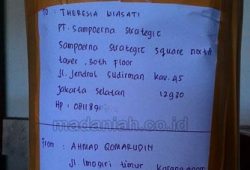 To : THERESIA WIASATI
PT. Sampoerna Strategic
Sampoerna Strategic Square North
Tower, 30th Floor
Jl. Jendral Sudirman kav. 45
Jakarta Selatan 12930
HP : 081189
madaniah.co.id
From : AHMAD QOMARUDIN
Jl Imogiri timur